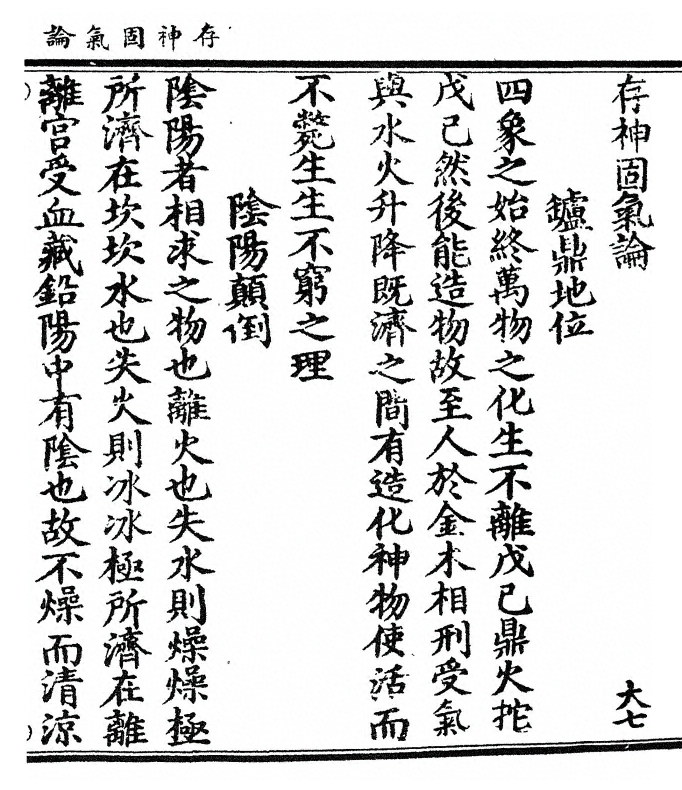 存神固氣論
存神固氣論
大七
鑪鼎地位
四象之始終萬物之化生不離戊己鼎火抱
戊己然後能造物故至人於金木相刑受氣
與水火升降既濟之間有造化神物使活而
不斃生生不窮之理
陰陽顛倒
陰陽者相求之物也離火也失水則燥燥極
所濟在坎坎水也失火則冰冰極所濟在離
離宮受血藏鉛陽中有陰也故不燥而清涼